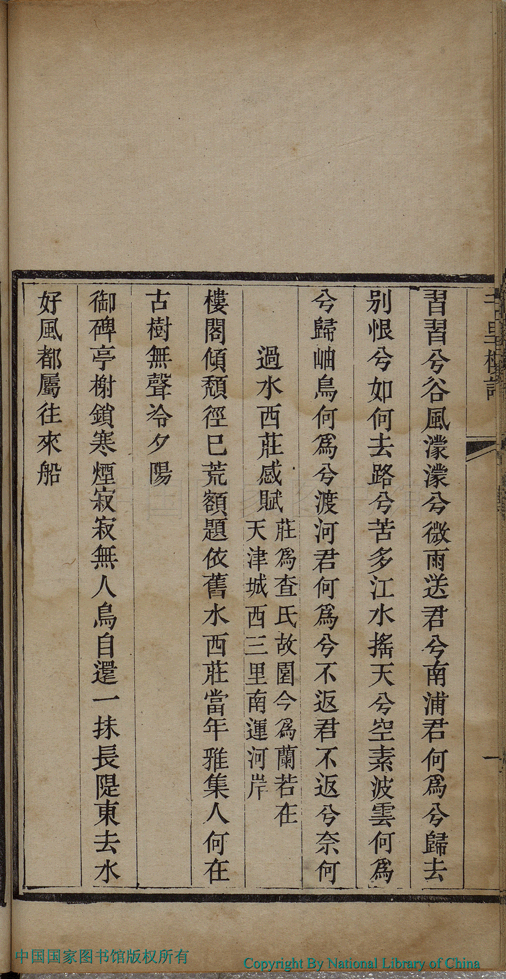 習習兮谷風濛濛兮微雨送君兮南浦君何爲兮歸去
別恨兮如何去路兮苦多江水搖天兮空素波雲何爲
兮歸岫鳥何爲兮渡河君何爲兮不返君不返兮奈何
過水西莊感賦
莊爲査氏故園今爲蘭若在
天津城西三里南運河岸
樓閣傾頽徑已荒額題依舊水西莊當年雅集人何在
古樹無聲冷夕陽
御碑亭榭鎖寒煙寂寂無人鳥自還一抹長隄東去水
好風都屬往來船
一
中国国家图书馆版权所有
Copyright By National Library of China